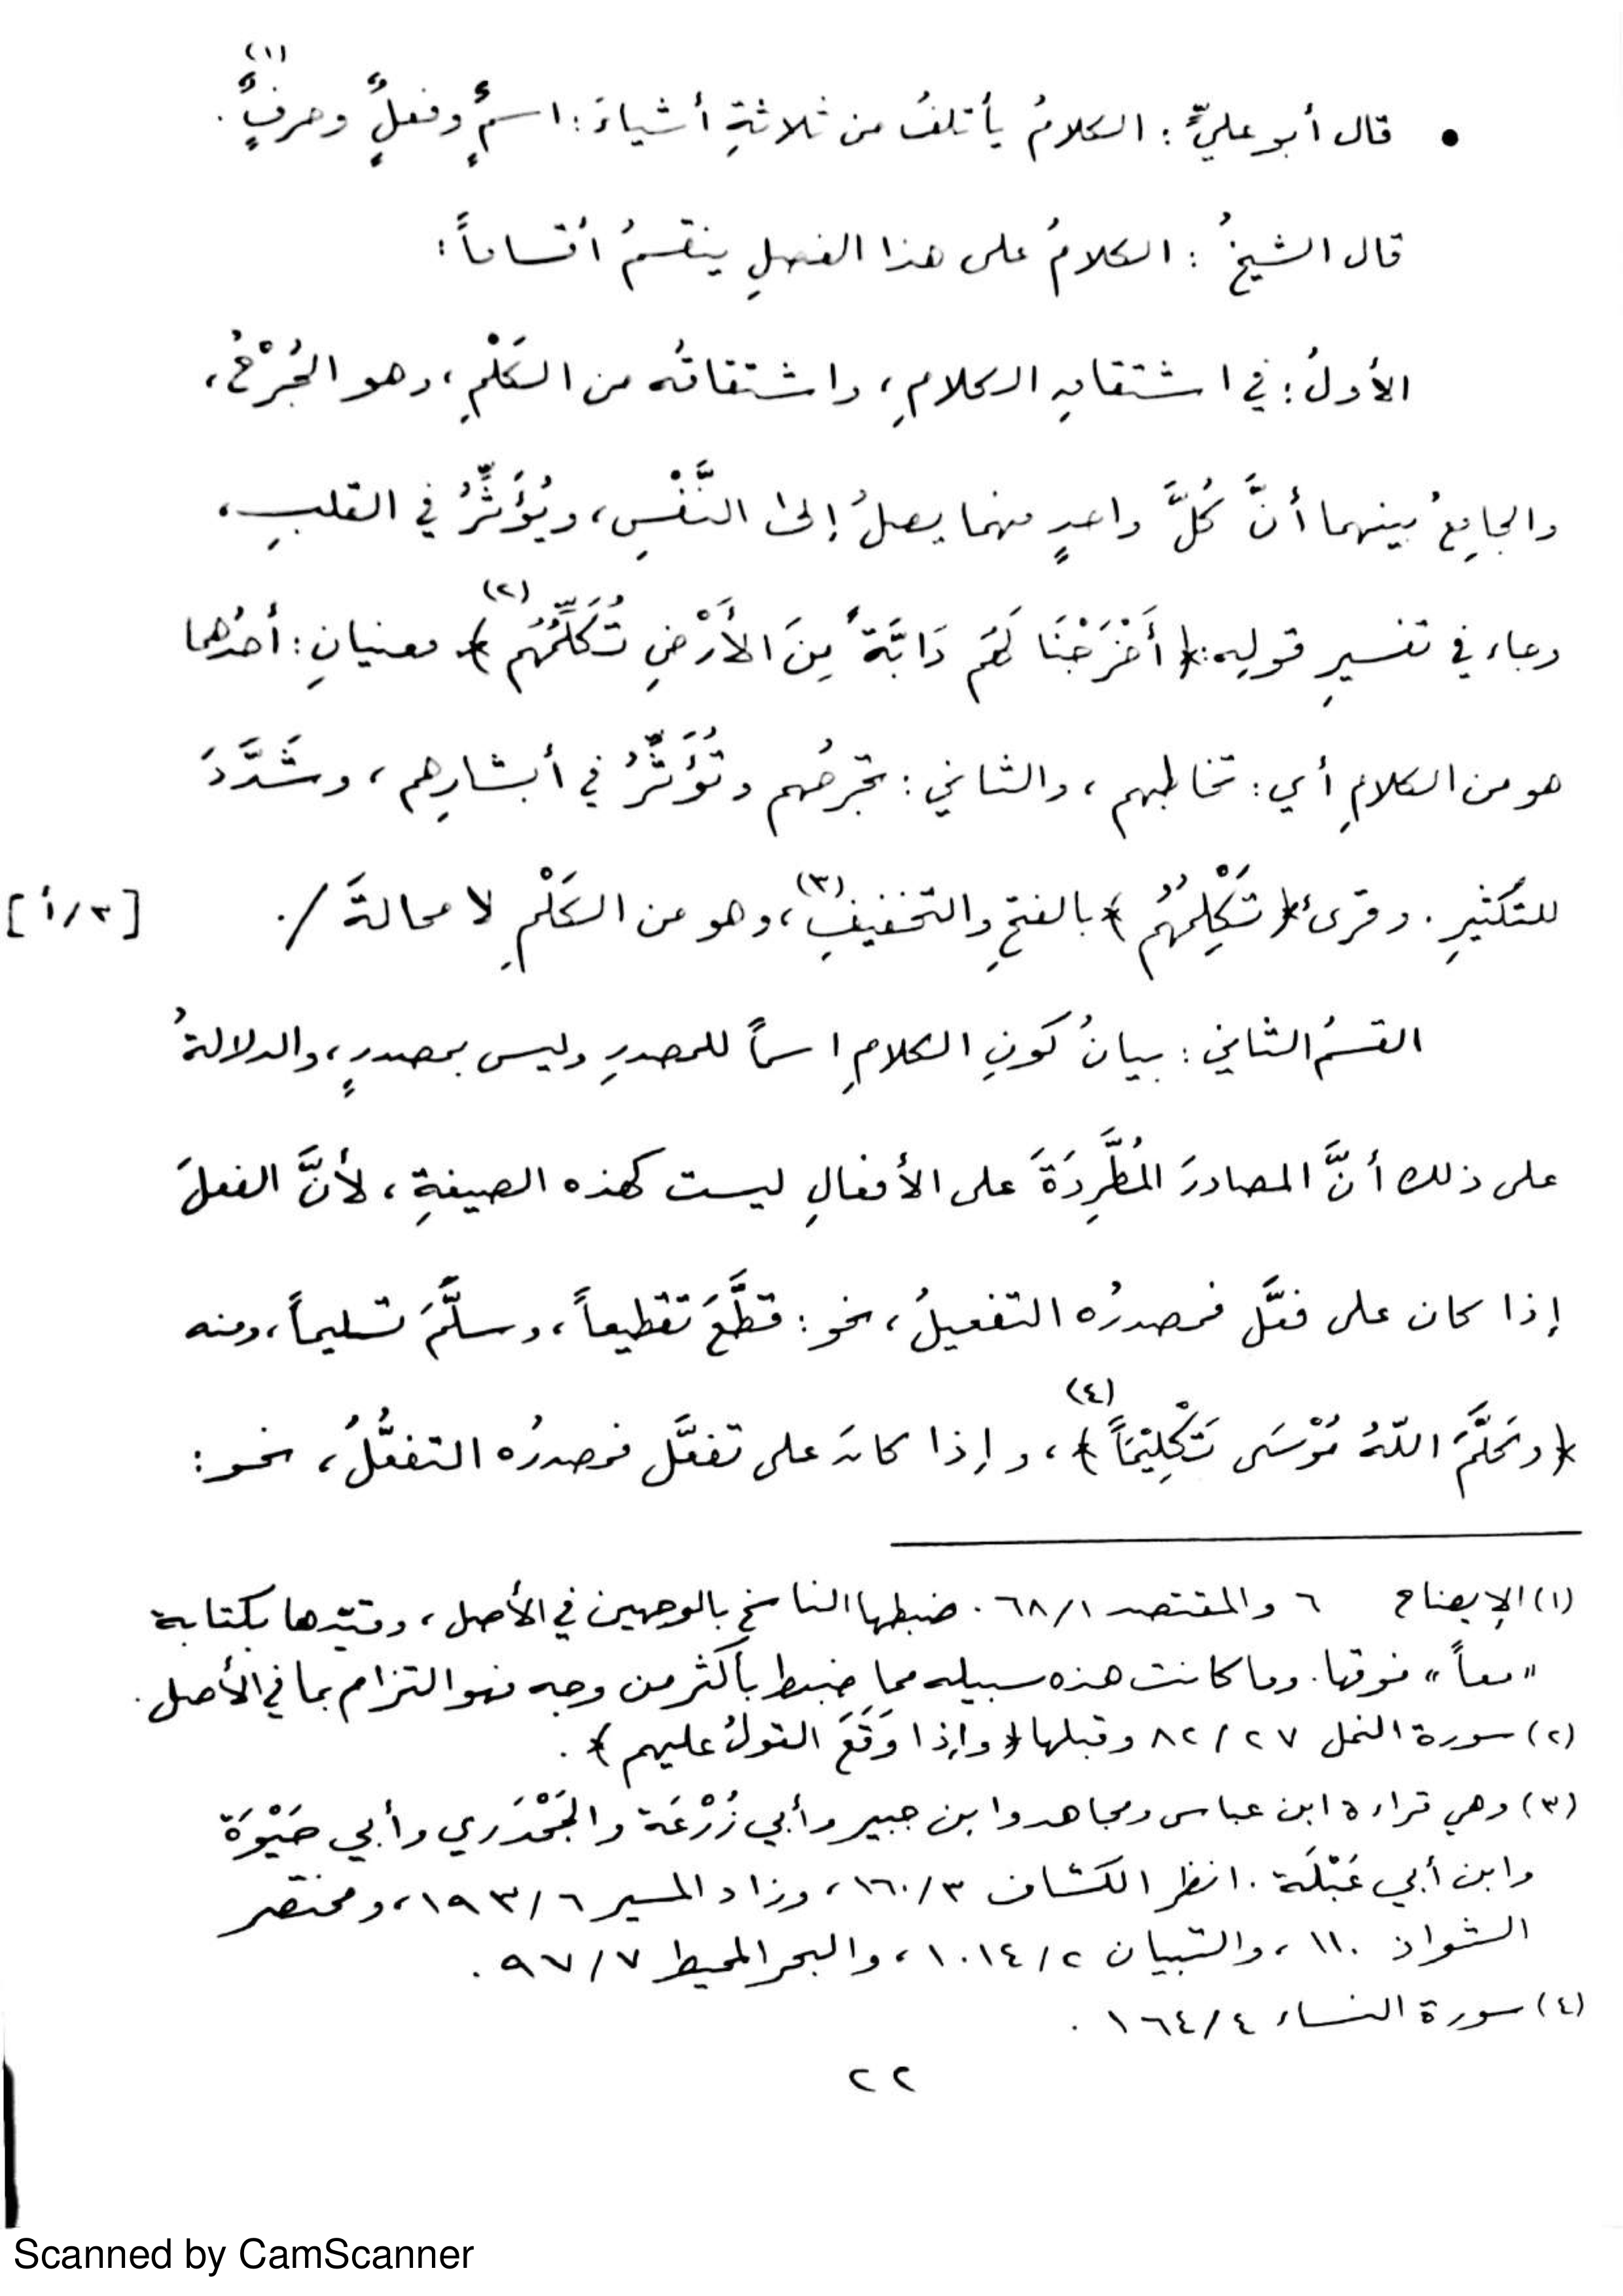 • قال أبو عليٍّ : الكلامُ يأتلفُ من ثلاثةِ أشياءَ : اسمٌٍ وفعلٌٍ وحرفٌٍ (١) .
قال الشيخُ : الكلامُ على هذا الفصلِ ينقسمُ أقساماً :
الأولُ : في اشتقاقِ الكلامِ ، واشتقاقُه من الكَلْمِ ، وهو الجُرْحُ ،
والجامِعُ بينهما أنَّ كُلَّ واحدٍ منهما يصلُ إلى النَّفْسِ ، ويُؤَثِّرُ في القلبِ ،
وجاء في تفسيرِ قولِه : ﴿ أَخْرَجْنَا لَهُم دَابَّةً مِنَ الأَرْضِ تُكَلِّمُهُم ﴾ (٢) معنيانِ : أحدُهما
هو من الكلامِ أي : تخاطبهم ، والثاني : تجرحُهم وتُؤَثِّرُ في أبشارِهم ، وشَدَّدَ
للتكثيرِ . وقرئ ﴿ تَكْلِمُهُم ﴾ بالفتحِ والتخفيفِ (٣) ، وهو من الكَلْمِ لا محالةَ / . [٣/أ]
القسمُ الثاني : بيانُ كونِ الكلامِ اسماً للمصدرِ وليس بمصدرٍ ، والدلالةُ
على ذلك أنَّ المصادرَ المُطَّرِدَةَ على الأفعالِ ليست كهذه الصيغةِ ، لأنَّ الفعلَ
إذا كان على فعَّل فمصدرُه التفعيلُ ، نحو : قطَّعَ تقطيعاً ، وسلَّمَ تسليماً ، ومنه
﴿ وكَلَّمَ اللّهُ مُوْسَى تَكْلِيْمَاً ﴾ (٤) ، وإذا كان على تفعَّل فمصدرُه التفعُّلُ ، نحو :
(١) الإيضاح ٦ والمقتصد ٦٨/١ . ضبطها الناسخ بالوجهين في الأصل ، وقيّدها بكتابة
" معاً " فوقها . وما كانت هذه سبيله مما ضبط بأكثر من وجه فهو التزام بما في الأصل .
(٢) سورة النمل ٨٢/٢٧ وقبلها ﴿ وإذا وَقَعَ القولُ عليهم ﴾ .
(٣) وهي قراءة ابن عباس ومجاهد وابن جبير وأبي زُرْعَة والجَحْدَري وأبي حَيْوَة
وابن أبي عَبْلَة . انظر الكشاف ١٦٠/٣ ، وزاد المسير ١٩٣/٦ ، ومختصر
الشواذ ١١٠ ، والتبيان ١٠١٤/٢ ، والبحر المحيط ٩٧/٧ .
(٤) سورة النساء ١٦٤/٤ .
٢٢
Scanned by CamScanner